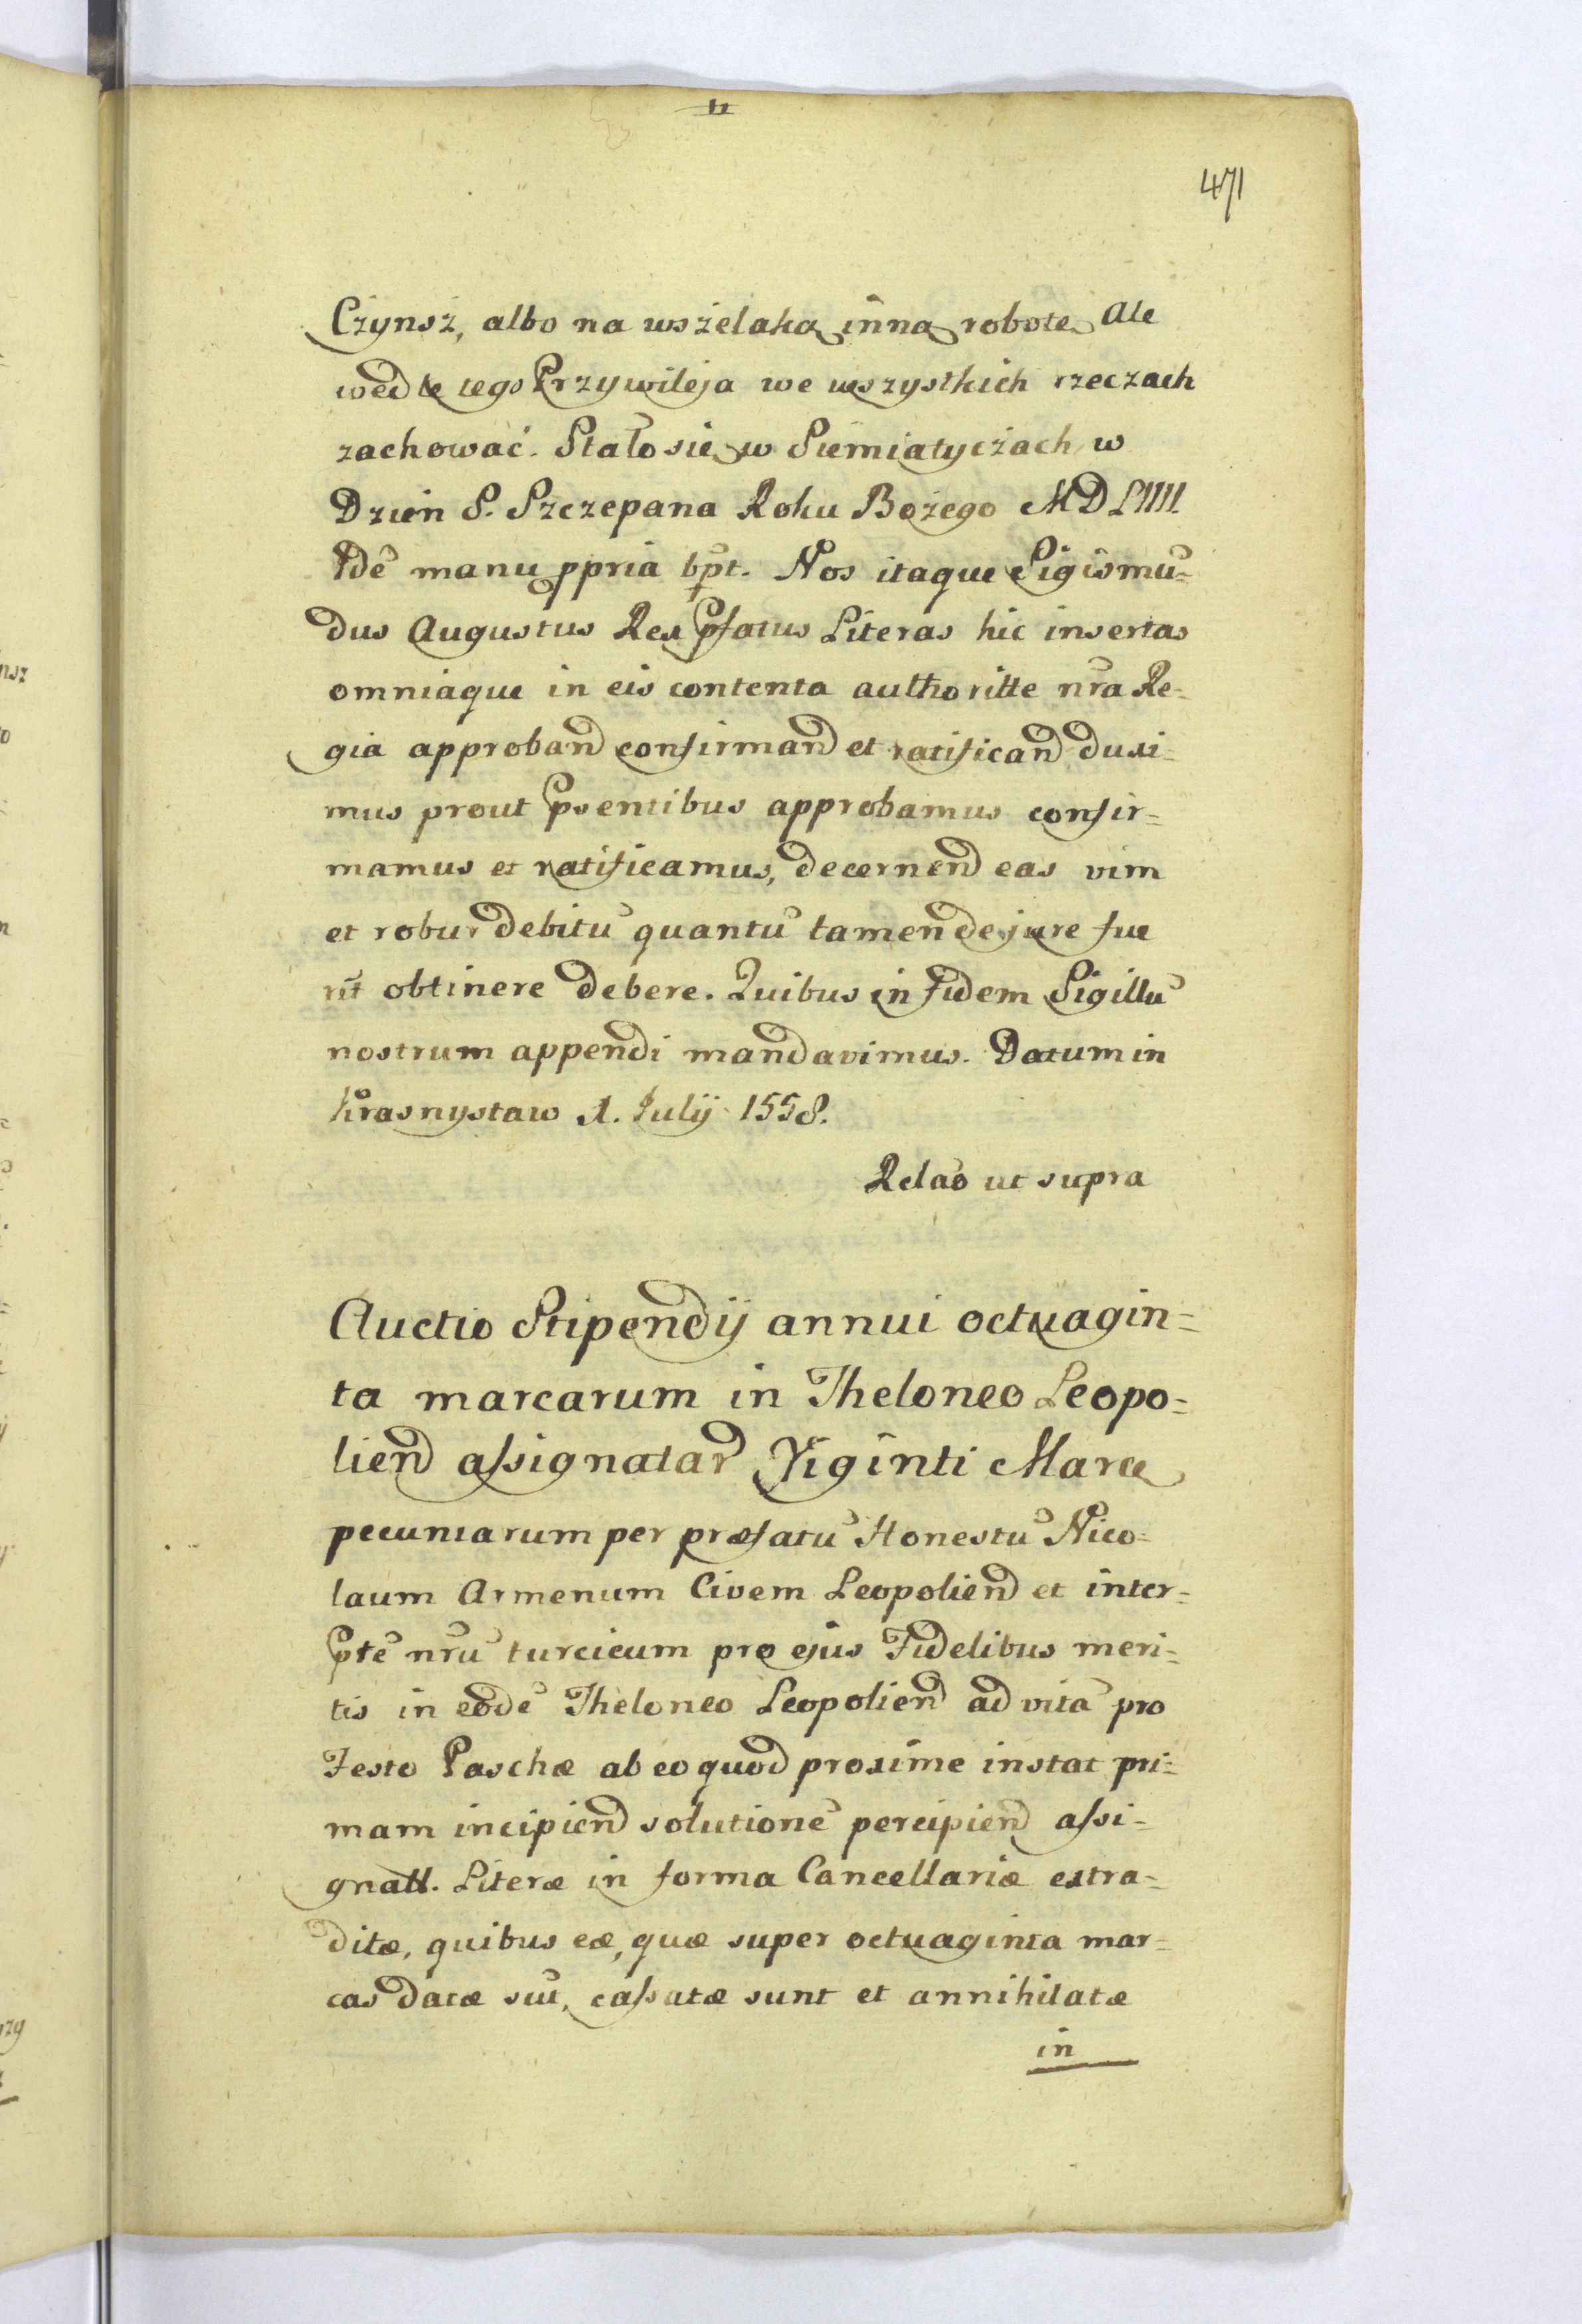 471
Czynsz, albo na wszelaką inną robotę Ale
wedle tego Przywileja we wszystkich rzeczach
zachować. Stało się w Siemiatyczach, w
Dzień S. Szczepana Roku Bożego MDLIIII
Idē manu ppria
Nos itaque Sigismū=
dus Augustus Rex pfatus Literas hic insertas
omniaque in eis contenta authoritte nr̄a Re=
gia approband confirmand et ratificand duxi=
mus prout psentibus approbamus confir=
mamus et ratificamus, decernend eas vim
et robur debitū quantū tamen de jure fue
rit obtinere debere. Quibus in fidem Sigillū
nostrum appendi mandavimus. Datum in
Krasnystaw 1. Julij 1558.
Relaō ut supra
Auctio Stipendij annui octuagin=
ta marcarum in Theloneo Leopo=
liend assignatar Viginti Marcæ
pecuniarum per præfatū Honestū Nico=
laum Armenum Civem Leopoliend et inter=
ptē nrū turcicum pro ejus Fidelibus meri=
tis in eodē Theloneo Leopolien ad vitā pro
Festo Paschæ ab eo quod proxime instat pri=
mam incipiend solutionē percipiend assi=
gnatt. Literæ in forma Cancellariæ extra=
ditæ, quibus eæ, quæ super octuaginta mar=
cas datæ sūt, cassatæ sunt et annihilatæ
in